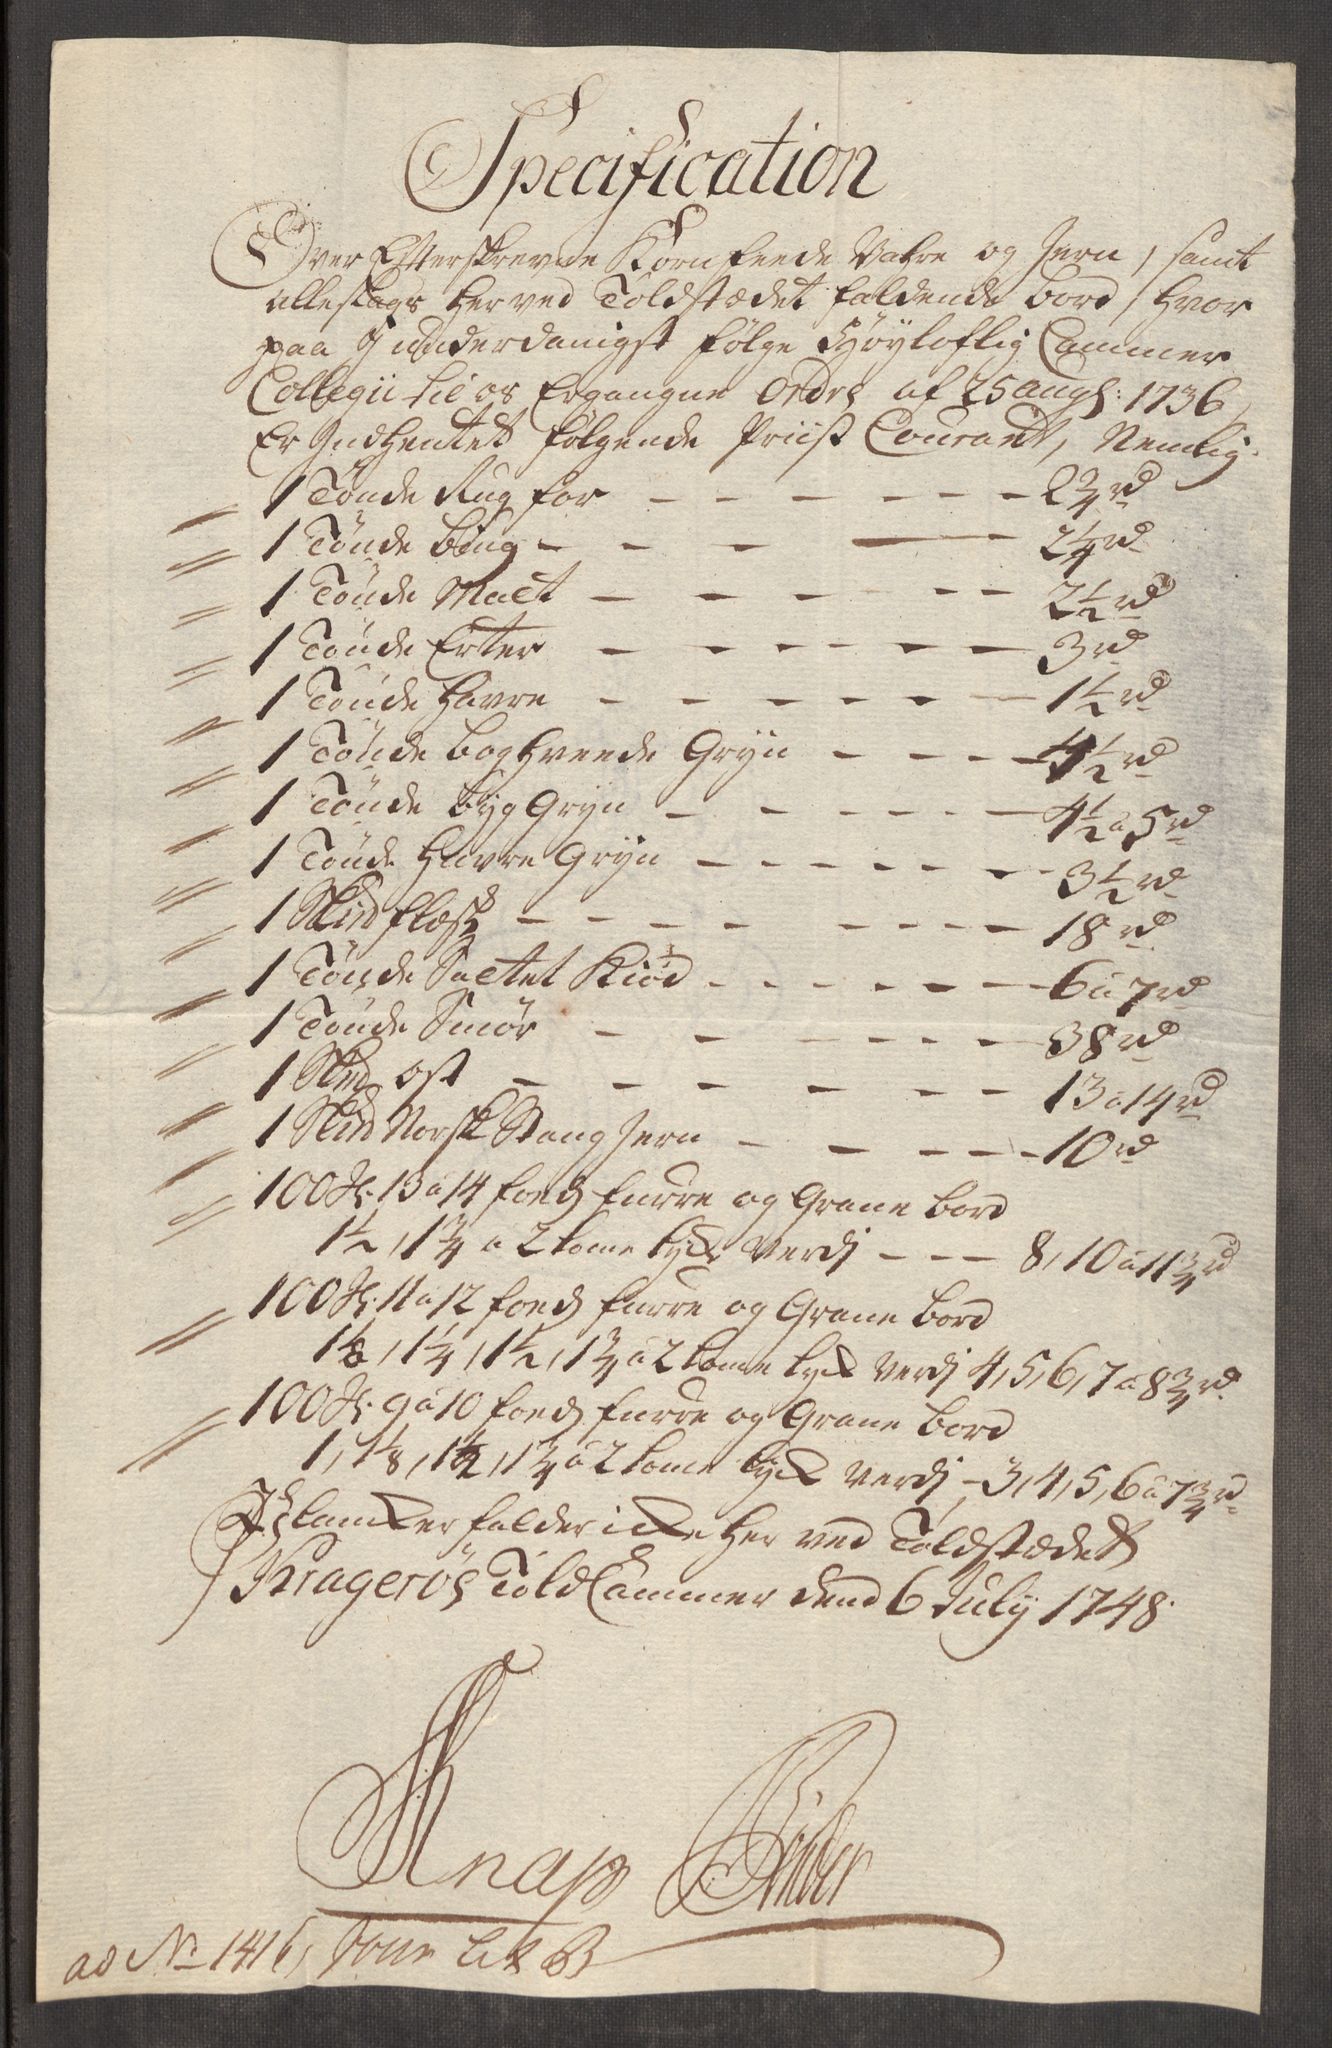 Specification
Over Efterskrevne Korn feede Vahre og Jern, samt
alleslags her ved Toldstædet faldende bord, hvor
paa I underdanigst følge Høyloflig Cammer
Collegii til os Ergangne Ordre af 25 augs: 1736,
Er Indhentet følgende Priis Courant, Nemlig.
1 Tønde Rug for — — — — — — 2 3/4 rd
1 Tønde biug — — — — — 2 1/4 rd
1 Tønde Malt — — — — — — 2 1/2 rd
1 Tønde Erter — — — — — — 3 rd
1 Tønde Havre — — — — — — 1 1/2 rd
1 Tønde boghveede Gryn — — — — 4 1/2 rd
1 Tønde byg Gryn — — — — — 4 1/2 a 5 rd
1 Tønde Havre Gryn — — — — — — 3 1/2 rd
1 Skd flæsk — — — — — — — 18 rd
1 Tønde Saltet Kiød — — — — — — 6 a 7 rd
1 Tønde Smør — — — — — — 38 rd
1 Skd ost — — — — — — 13 a 14 rd
1 Skd Norsk Stang Jern — — — — — 10 rd
100 st. 13 a 14 foeds furre og Grane bord
1 1/2, 1 3/4 a 2 tome tyck Verdj — — — 8, 10 a 11 3/4 rd
100 st. 11 a 12 foeds furre og Grane bord
1 1/8, 1 1/4, 1 1/2, 1 3/4 a 2 tome tyck Verdj 4, 5, 6, 7 a 8 3/4 rd
100 st. 9 a 10 foeds furre og Grane bord
1, 1 1/8, 1 1/2, 1 3/4 a 2 tome tyck Verdj — 3, 4, 5, 6 a 7 3/4 rd
Plancker falder icke her ved Toldstædet
Kragerøes Told Cammer dend 6 July 1748.
Knap
ad No 1416, Jour Lit B